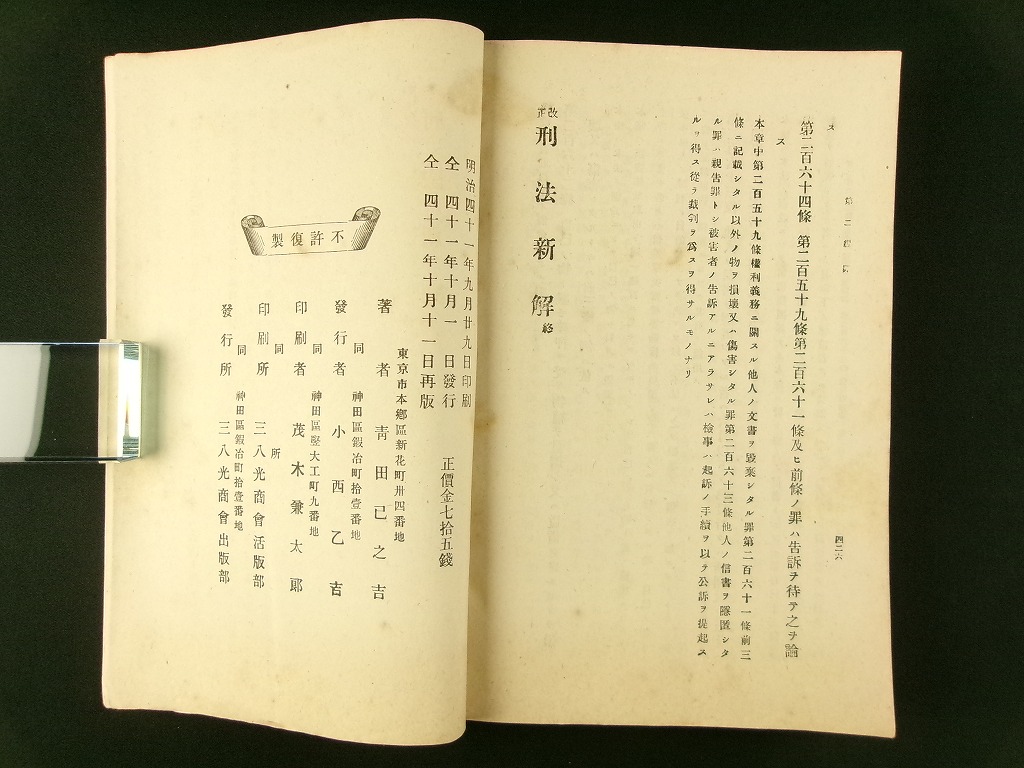 第二編
四二六
ス
第二百六十四條 第二百五十九條第二百六十一條及ヒ前條ノ罪ハ告訴ヲ待テ之ヲ論
ス
本章中第二百五十九條權利義務ニ關スル他人ノ文書ヲ毀棄シタル罪第二百六十一條前三
條ニ記載シタル以外ノ物ヲ損壞又ハ傷害シタル罪第二百六十三條他人ノ信書ヲ隱匿シタ
ル罪ハ親告罪トシ被害者ノ告訴アルニアラサレハ檢事ハ起訴ノ手續ヲ以テ公訴ヲ提起ス
ルヲ得ス從テ裁判ヲ爲スヲ得サルモノナリ
改正刑法新解終
明治四十一年九月廿九日印刷
仝 四十一年十月一日發行
仝 四十一年十月十一日再版
正價金七拾五錢
不許復製
東京市本鄕區新花町卅四番地
著者 靑田已之吉
同 神田區鍛冶町拾壹番地
發行者 小西乙吉
同 神田區竪大工町九番地
印刷者 茂木兼太郎
同 所
印刷所 三八光商會活版部
同 神田區鍛冶町拾壹番地
發行所 三八光商會出版部